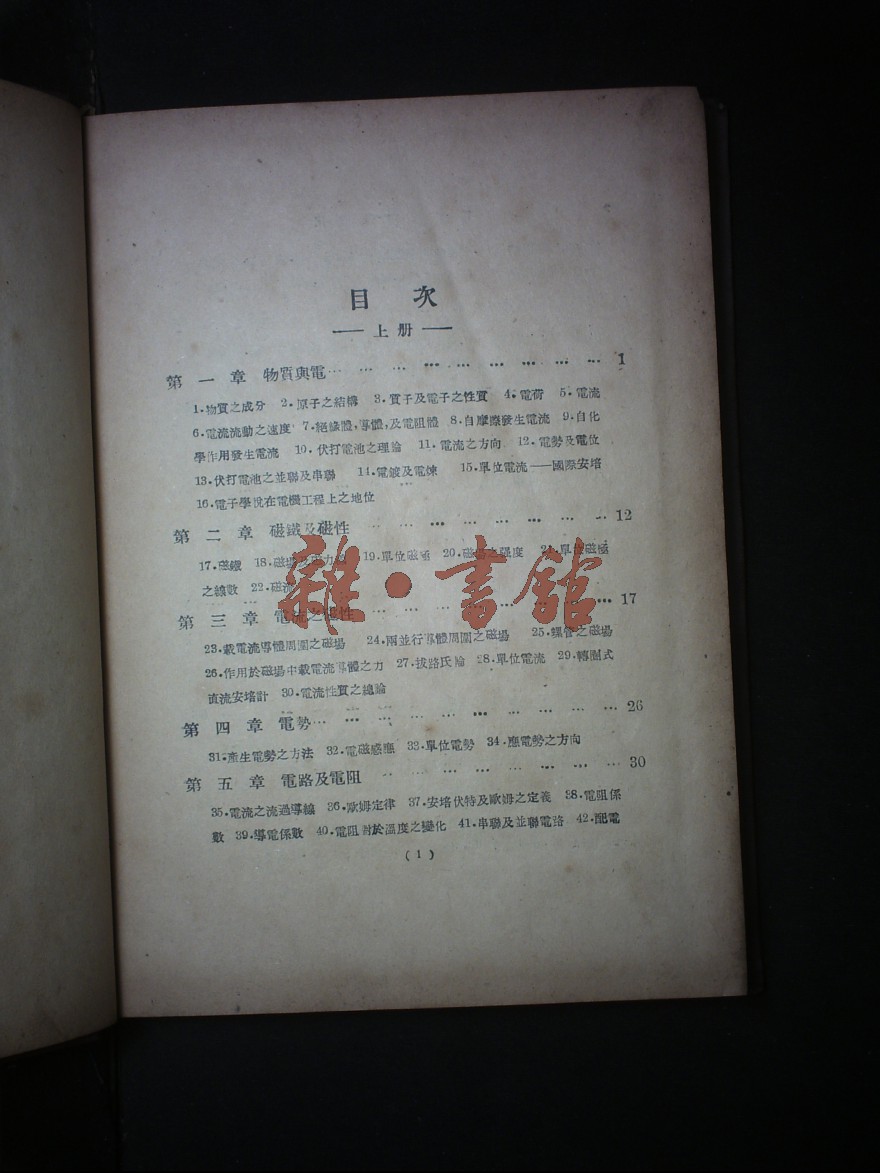 目 次
—— 上册 ——
第一章 物質與電… … … … … … … … … 1
1.物質之成分 2.原子之結構 3.質子及電子之性質 4.電荷 5.電流
6.電流流動之速度 7.絕緣體,導體,及電阻體 8.自摩擦發生電流 9.自化
學作用發生電流 10.伏打電池之理論 11.電流之方向 12.電勢及電位
13.伏打電池之並聯及串聯 14.電鍍及電煉 15.單位電流——國際安培
16.電子學說在電機工程上之地位
第二章 磁鐵及磁性 … … … … … … … … 12
17.磁鐵 18.磁場及磁力線 19.單位磁極 20.磁場之强度 21.單位磁極
之線數 22.磁流
第三章 電流之磁性 … … … … … … … … 17
23.載電流導體周圍之磁場 24.兩並行導體周圍之磁場 25.螺管之磁場
26.作用於磁場中載電流導體之力 27.拔路氏輪 28.單位電流 29.轉圈式
直流安培計 30.電流性質之總論
第四章 電勢… … … … … … … … … 26
31.產生電勢之方法 32.電磁感應 33.單位電勢 34.應電勢之方向
第五章 電路及電阻 … … … … … … … … 30
35.電流之流過導線 36.歐姆定律 37.安培伏特及歐姆之定義 38.電阻係
數 39.導電係數 40.電阻對於溫度之變化 41.串聯及並聯電路 42.配電
(1)
雜·書館